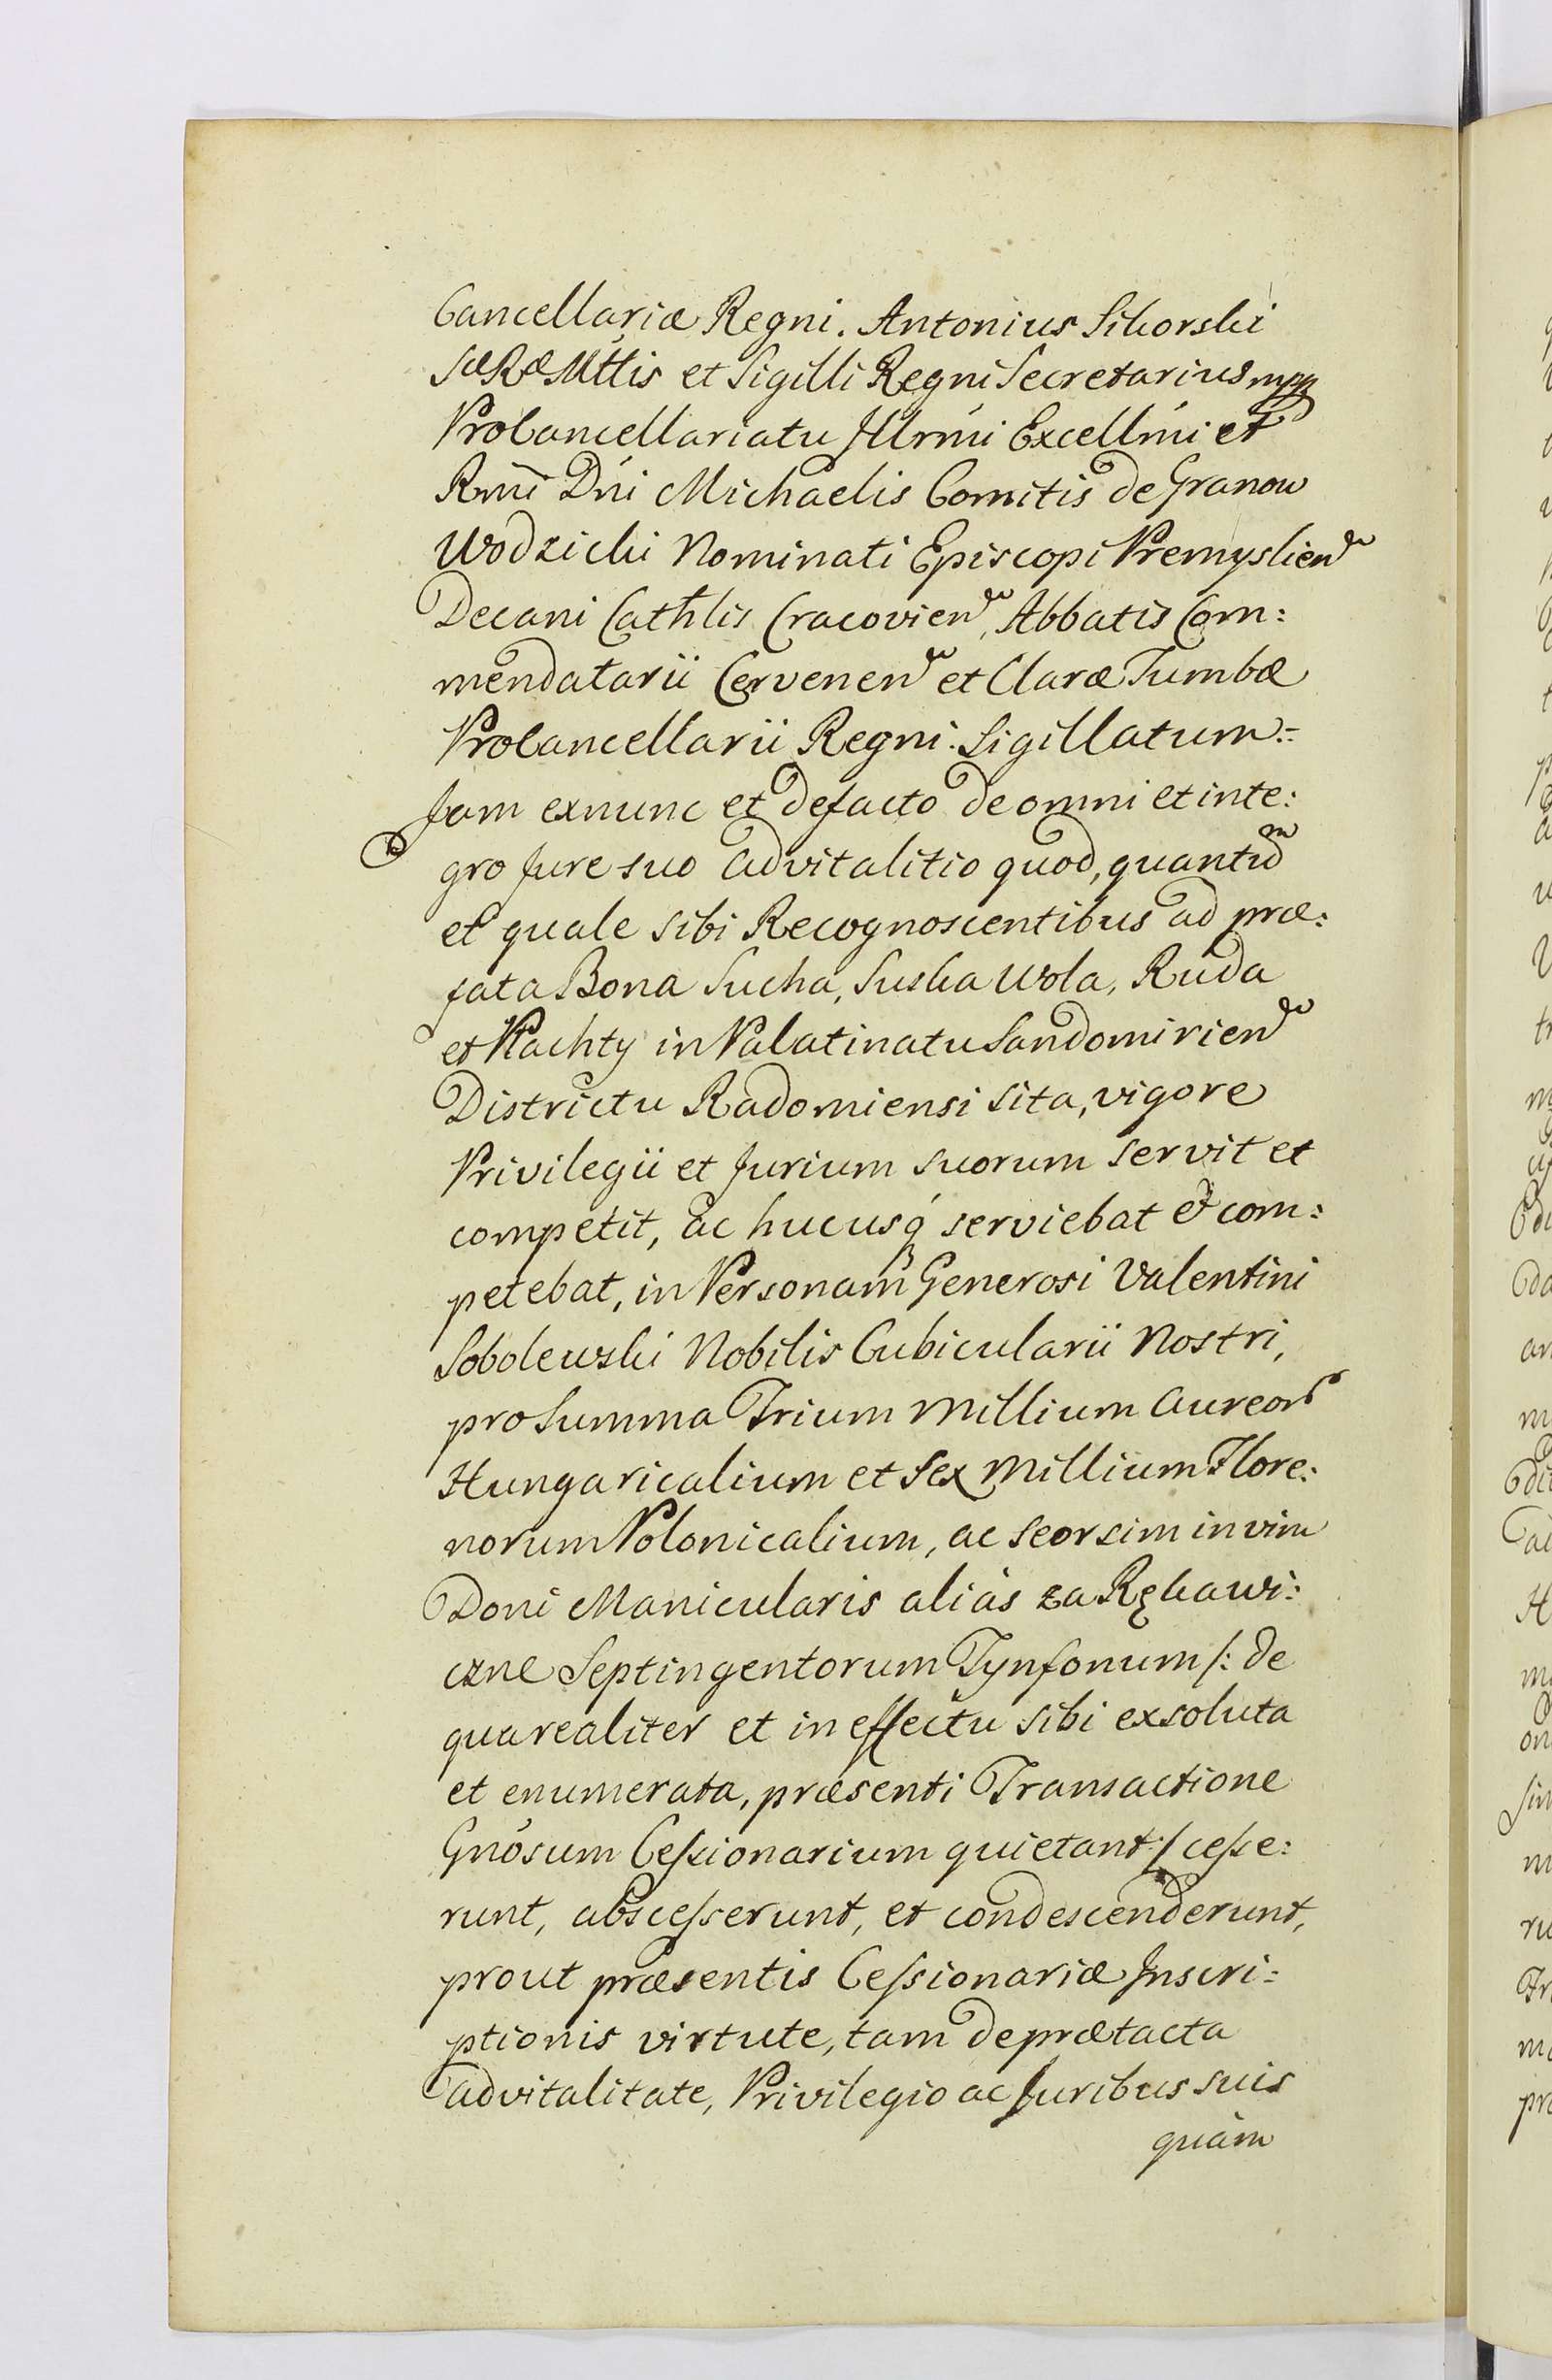 Cancellariæ Regni. Antonius Sikorski
SæRæMttis et Sigilli Regni Secretarius mpp
ProCancellariatu Jllrmi Excellmi et
Rmi Dni Michaelis Comitis de Granow
Wodzicki Nominati Episcopi Premyslien
Decani Cathlis Cracovien, Abbatis Com:
mendatarii Cervenen et Claræ Tumbæ
ProCancellarii Regni. Sigillatum.=
Jam exnunc et defacto de omni et inte:
gro Jure suo Advitalitio quod, quantum
et quale sibi Recognoscentibus ad præ:
fata Bona Sucha, Suska Wola, Ruda
et Płachty in Palatinatu Sandomirien
Districtu Radomiensi sita, vigore
Privilegii et Jurium suorum servit et
competit, ac hucusq́ serviebat et com:
petebat, in Personam Generosi Valentini
Sobolewski Nobilis Cubicularii Nostri,
pro Summa Trium Millium Aureor
Hungaricalium et Sex Millium Flore:
norum Polonicalium, ac seorsim in vim
Doni Manicularis aliàs za Rękawi:
czne Septingentorum Tynfonum /: de
qua realiter et in effectu sibi exsoluta
et enumerata, præsenti Transactione
Gnosum Cessionarium quietant :/ cesse:
runt, abscesserunt, et condescenderunt,
prout præsentis Cessionariæ Inscri=
ptionis virtute, tam de prætacta
Advitalitate, Privilegio ac Juribus suis
quàm